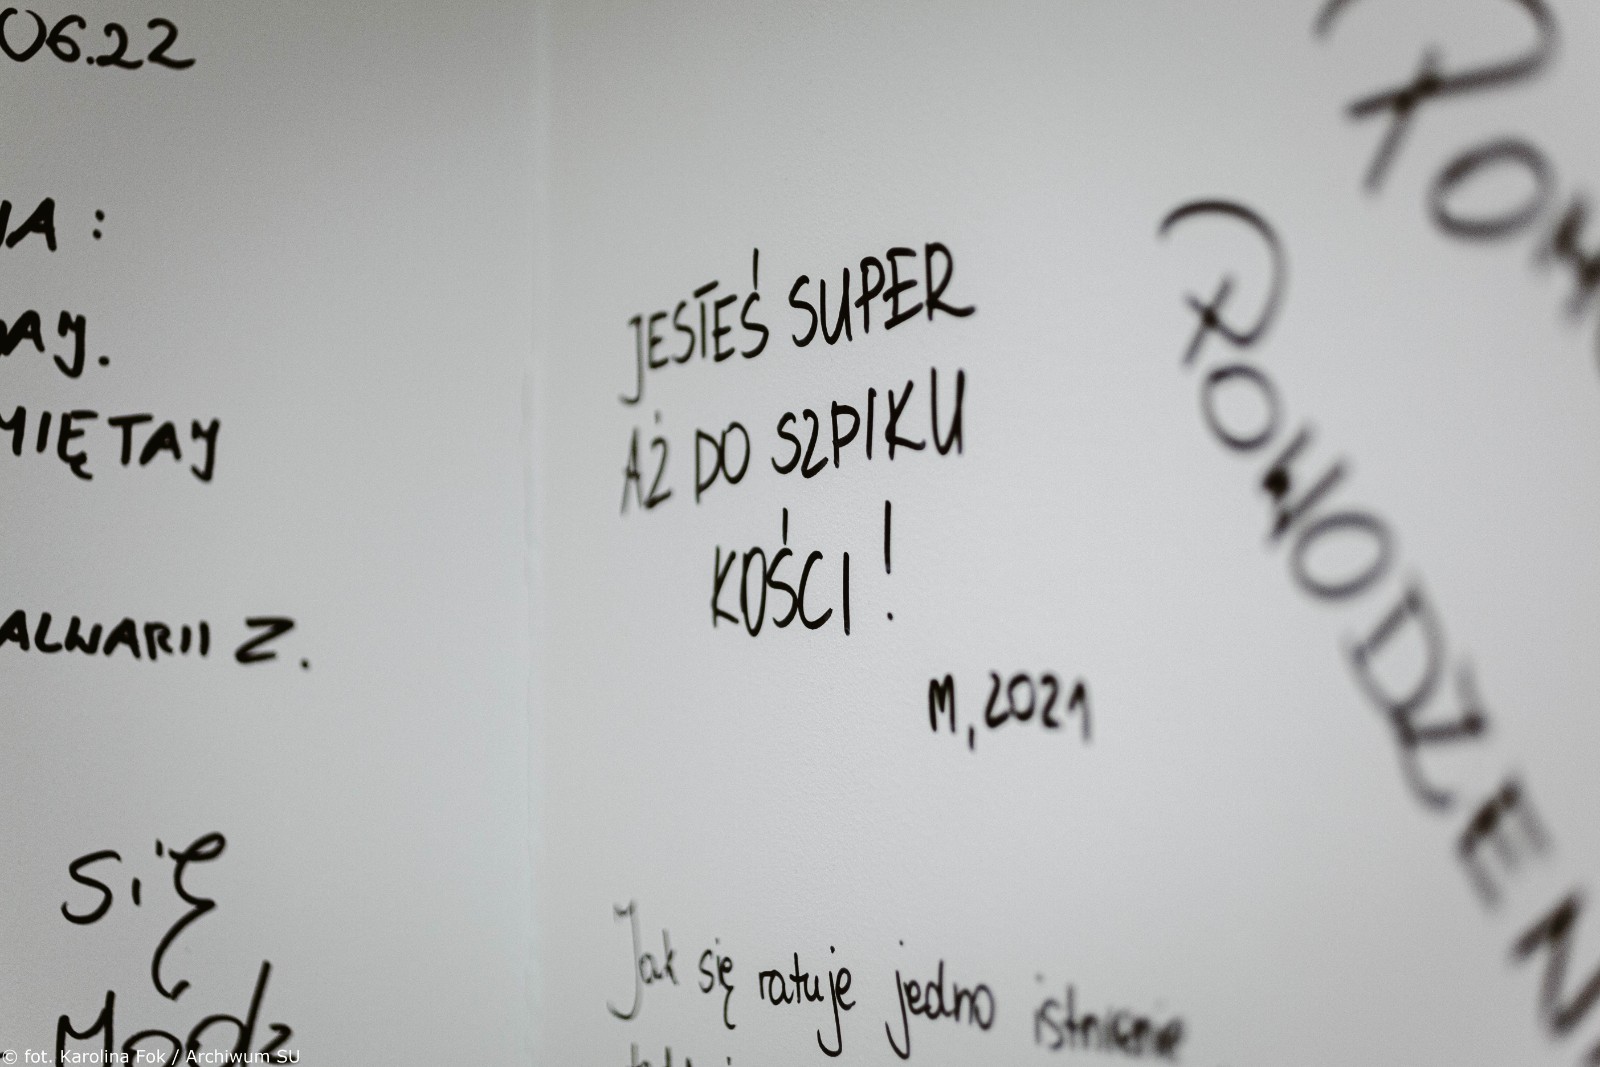 06.22
MIĘTAJ
ALWARII Z.
SIĘ
JESTEŚ SUPER
AŻ DO SZPIKU
KOŚCI!
M, 2021
Jak się ratuje jedno istnienie
POWODZEN
© fot. Karolina Fok / Archiwum SU